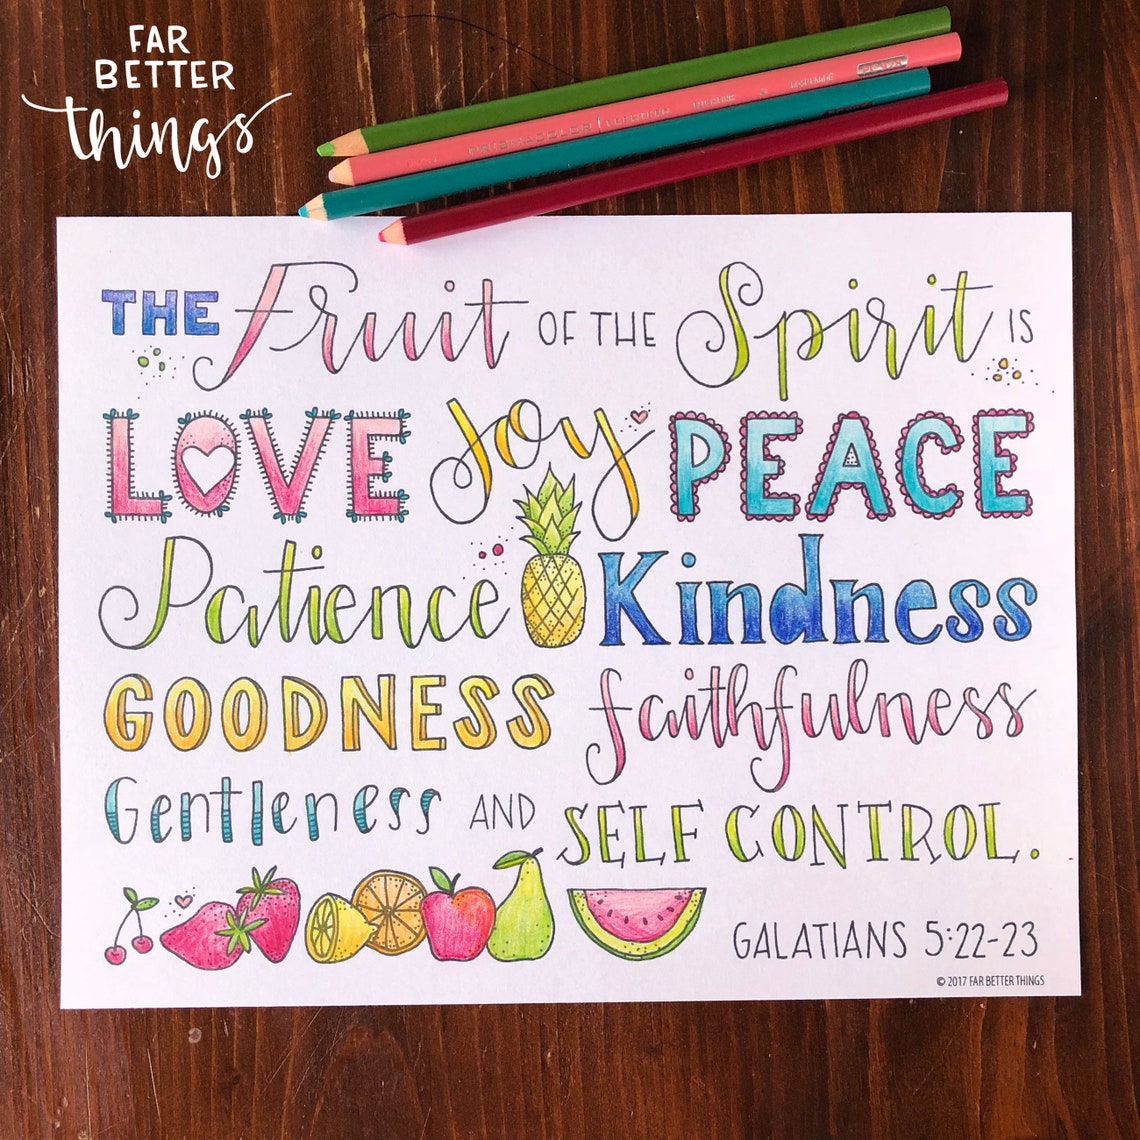 FAR
BETTER
things
PRISMACOLOR
THE Fruit OF THE Spirit IS
LOVE Joy PEACE
Patience Kindness
GOODNESS faithfulness
Gentleness AND SELF CONTROL.
GALATIANS 5:22-23
© 2017 FAR BETTER THINGS